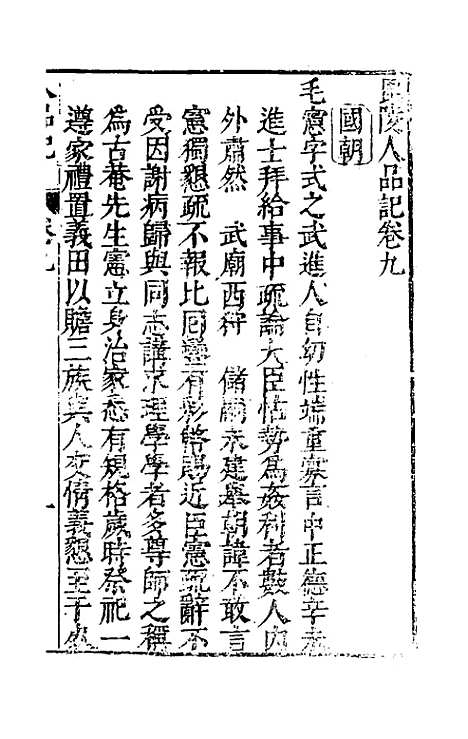 毘陵人品記卷九
國朝
毛憲字式之武進人自幼性端重寡言中正德辛未
進士拜給事中疏論大臣怙勢為姦利者數人內
外肅然　武廟西狩　儲嗣未建舉朝諱不敢言
憲獨懇疏不報比囘鑾有彩幣賜近臣憲疏辭不
受因謝病歸與同志講求理學學者多尊師之稱
為古菴先生憲立身治家悉有規格歲時祭祀一
遵家禮置義田以贍三族與人交情義懇至于
人品記　卷九　一